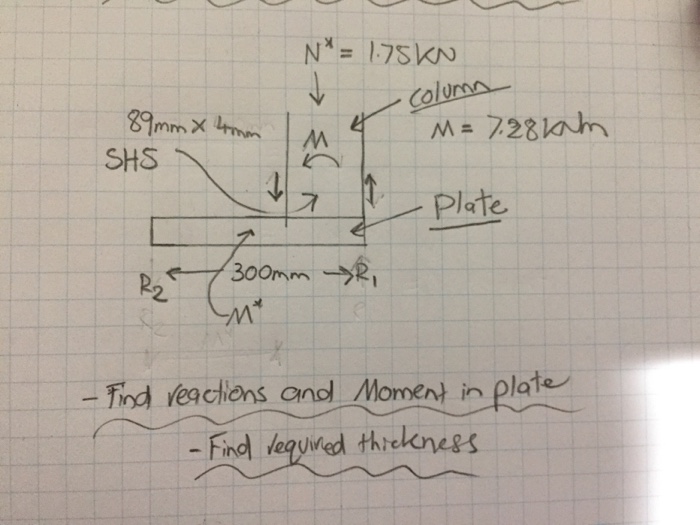 N* = 1.75KN
column
89mm x 4mm
SHS
M
M = 7.28kNm
Plate
R2
300mm
R1
M*
- Find reactions and Moment in plate
- Find required thickness